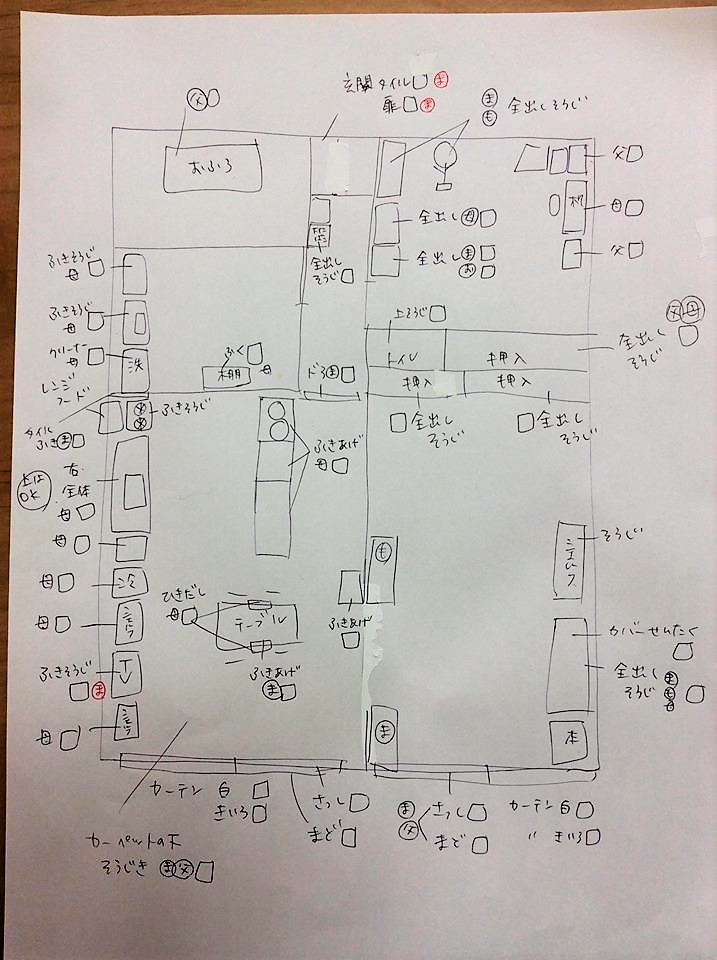 玄関タイル ま
扉 ま
父
ま
も
全出しそうじ
おふろ
父
机
母
父
全出し 母
全出し ま
お
全出し
そうじ
ふきそうじ
母
ふきそうじ
母
クリーナー
母
洗
レンジ
フード
ふく
母
棚
ドろ
上そうじ
トイレ
押入
押入
押入
父 母
全出し
そうじ
ふきそうじ
タイル
ふき ま
全出し
そうじ
全出し
そうじ
ふきあげ
母
上は
OK
右
全体
母
母
も
そうじ
シェルフ
母
冷
ひきだし
母
テーブル
ふきあげ
母
シェルフ
カバーせんたく
全出し
そうじ
ま
も
母
ふきそうじ
ま
TV
ふきあげ
ま
母
シェルフ
ま
本
カーテン 白
きいろ
さっし
まど
ま
父
さっし
まど
カーテン 白
〃 きいろ
カーペットの下
そうじき ま 父